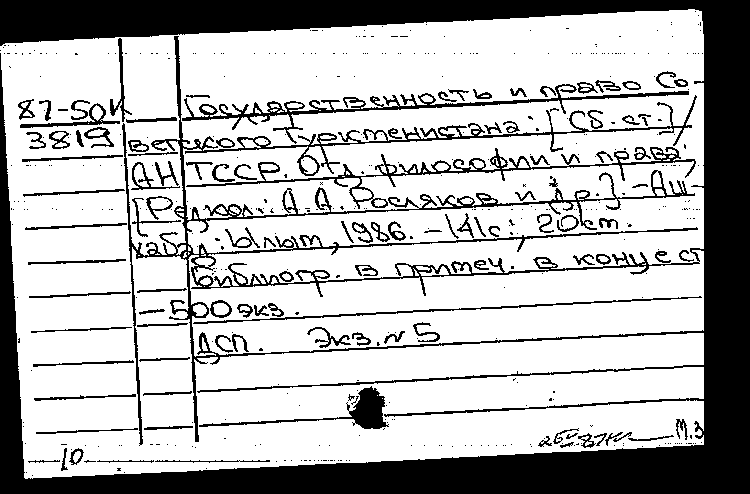 87-50к Государственность и право Со-
3819 ветского Туркменистана: [Сб. ст.] /
АН ТССР. Отд. философии и права;
[Редкол.: А. А. Росляков и др.]. - Аш-
хабад: Ылым, 1986. - 141с.; 20 см.
Библиогр. в примеч. в конце ст
- 500 экз.
ДСП. Экз. № 5
М.З
10